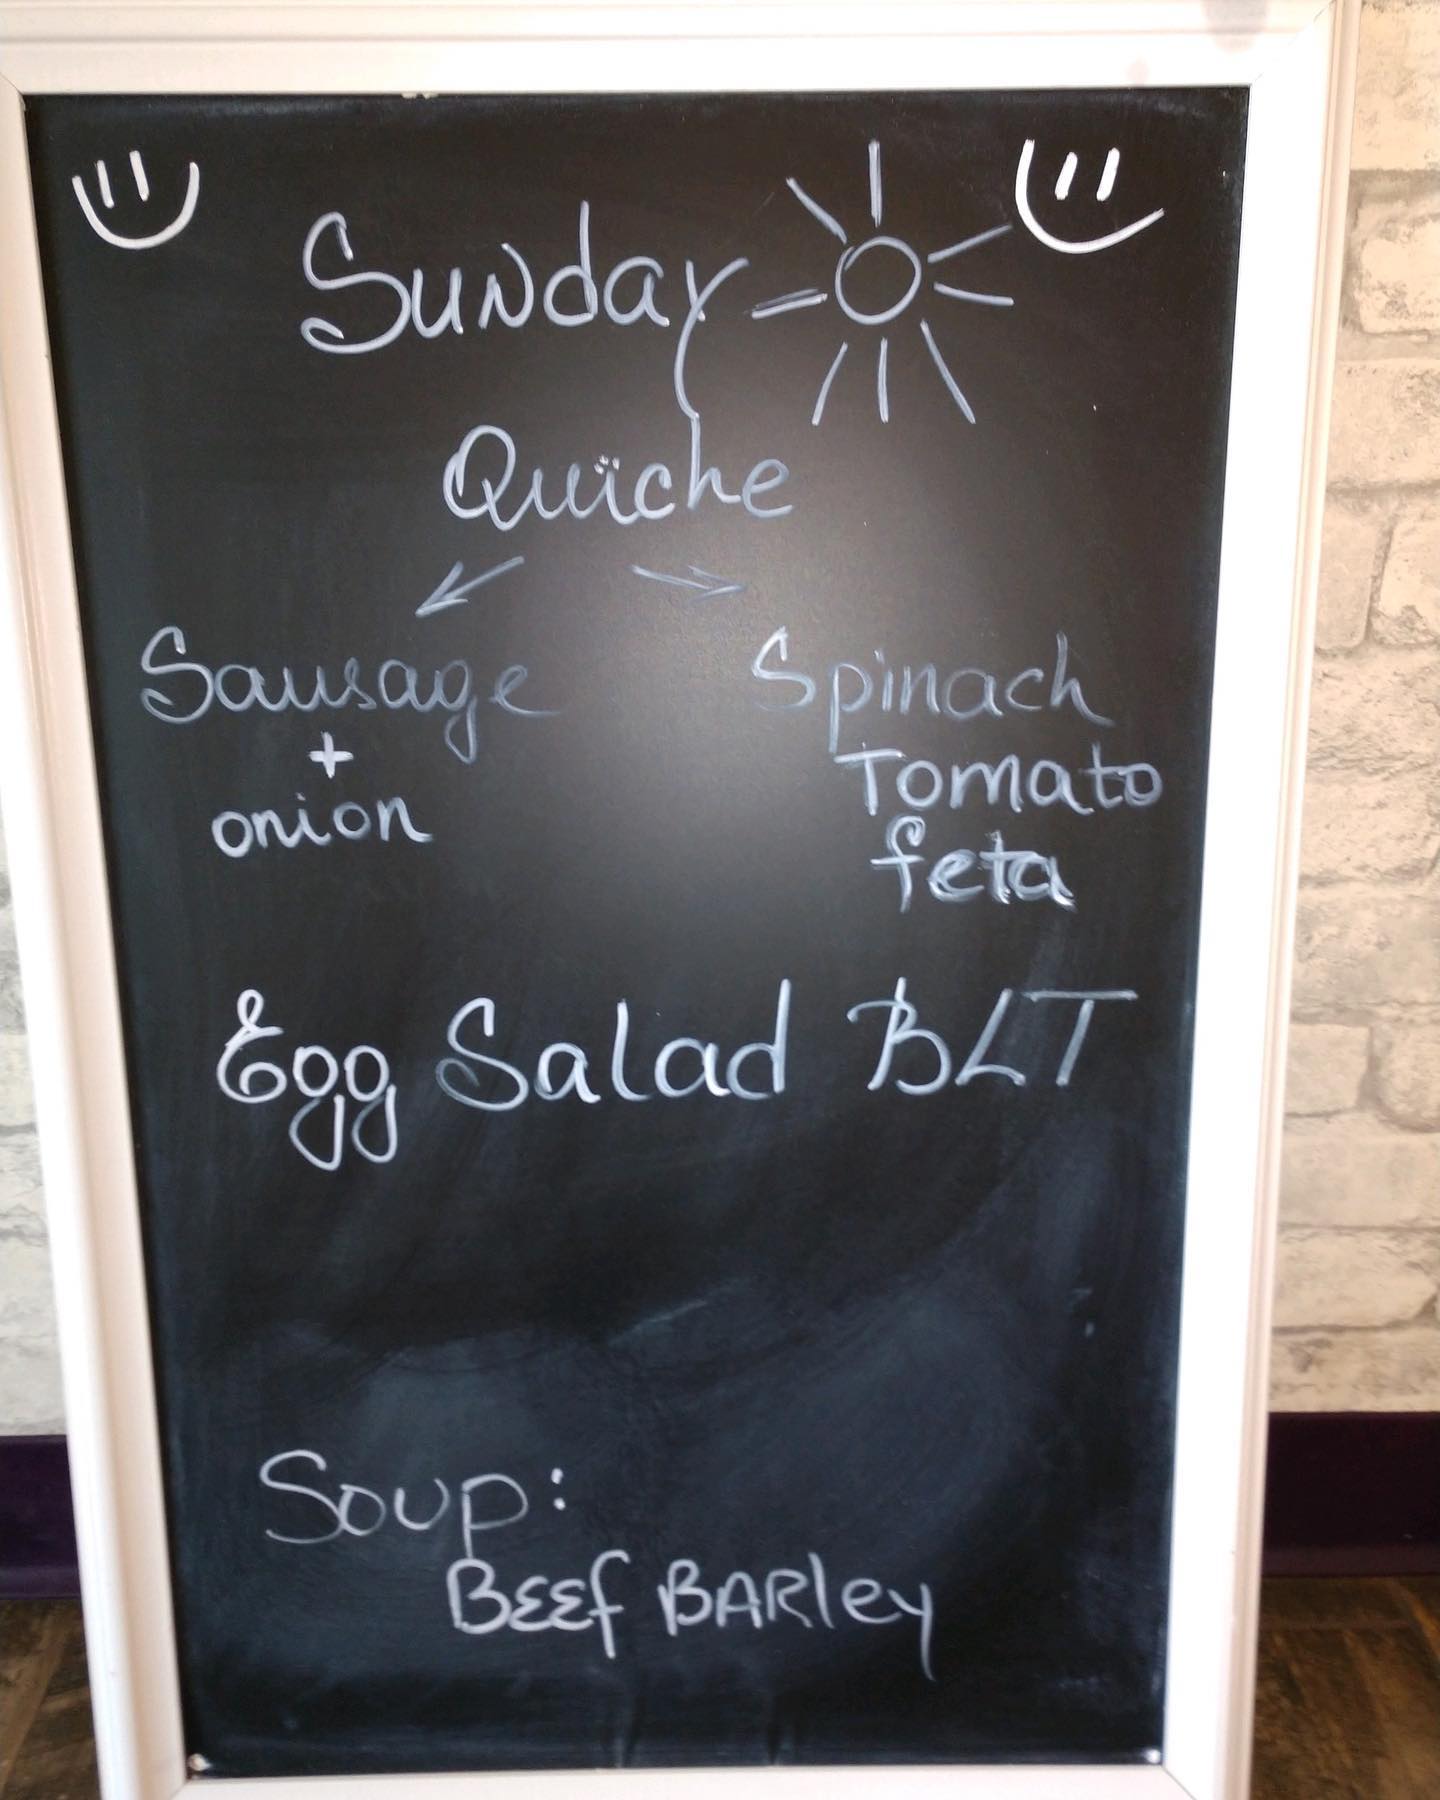 Sunday
Quïche
Sausage
+
onion
Spinach
Tomato
feta
Egg Salad BLT
Soup:
BEEf BARley